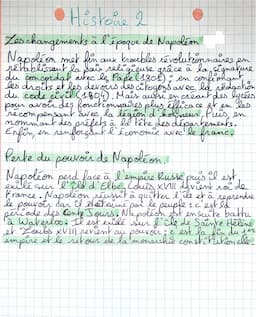 Histoire 2
Les changements à l'époque de Napoléon
Napoléon met fin aux troubles révolutionnaires en
rétablissant la paix religieuse grâce à la signature
du concordat avec le Pape (1801) ; en confirmant
des droits et les devoirs des citoyens avec la rédaction
du code civil (1804) Mais aussi en créant des lycées
pour avoir des fonctionnaires plus efficace et en les
récompensant avec la légion d'honneur. Puis en
nommant des préfets à la tête des départements.
Enfin, en renforçant l'économie avec le franc.
Perte du pouvoir de Napoléon.
Napoléon perd face à l'empire Russe puis il est
exilé sur l'île d'Elbe, Louis XVIII devient roi de
France. Napoléon réussit à quitter l'île et à reprendre
le pouvoir car il était aimé par le peuple : c'est la
période des Cent Jours. Napoléon est ensuite battu
à Waterloo. Il est exilé sur l'île de Sainte Hélène
et Louis XVIII revient au pouvoir : c'est la fin du 1er
empire et le retour de la monarchie constitutionnelle.